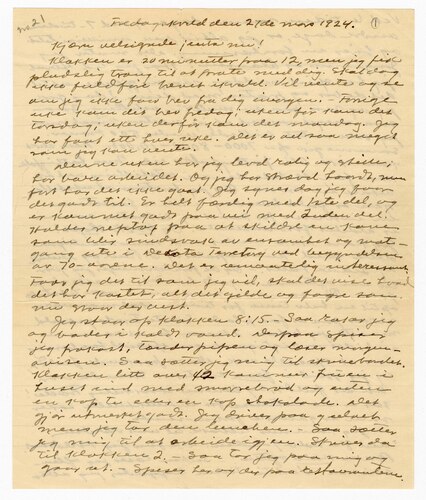 no 21
Fredagskveld den 21de mars 1924. ①
Kjære velsignede jenta mi!
Klokken er 20 minutter paa 12, men jeg fik
pludselig trang til at prate med dig. Skal dog
ikke fuldføre brevet ikveld. Vil vente og se
om jeg ikke faar brev fra dig imorgen. Forrige
uke kom det brev fredag; uken før kom det
torsdag; uken derfør kom det mandag. Jeg
har faat ett hver uke. Det er det som meget
som jeg kan vente.
Denne uken har jeg levd rolig og stille;
har bare arbeidet. Og jeg har strævd haardt, men
fort har det ikke gaat. Jeg synes dog jeg faar
det godt til. Er helt færdig med 1ste del, og
er kommet godt paa vei med 2den del.
Holder netop paa at skildre en kone
som blir sindssvak av ensomhet og mot-
gang ute i Dakota teritory ved begyndelsen
av 70-aarene. Det er uendelig interessant.
Faar jeg det til som jeg vil, skal det vise hvad
det har kostet, alt det gilde og fagre som
nu gror der vest.
Jeg staar op klokken 8:15. – Saa raser jeg
og bader i koldt vand. Derpaa spiser
jeg frokost, tænder pipen og læser morgen-
avisen. Saa sætter jeg mig til skrivebordet.
Klokken litt over 12 kommer fruen i
huset ind med smørrebrød og enten
en kop te eller en kop sjokolade. Det
gjør utmerket godt. Jeg driver paa og skriver
mens jeg tar denne lunchen. – Saa sætter
jeg mig til at arbeide igjen. Skriver da
til klokken 2. – Saa tar jeg paa mig og
gaar ut. Spiser her og der paa restauranter.